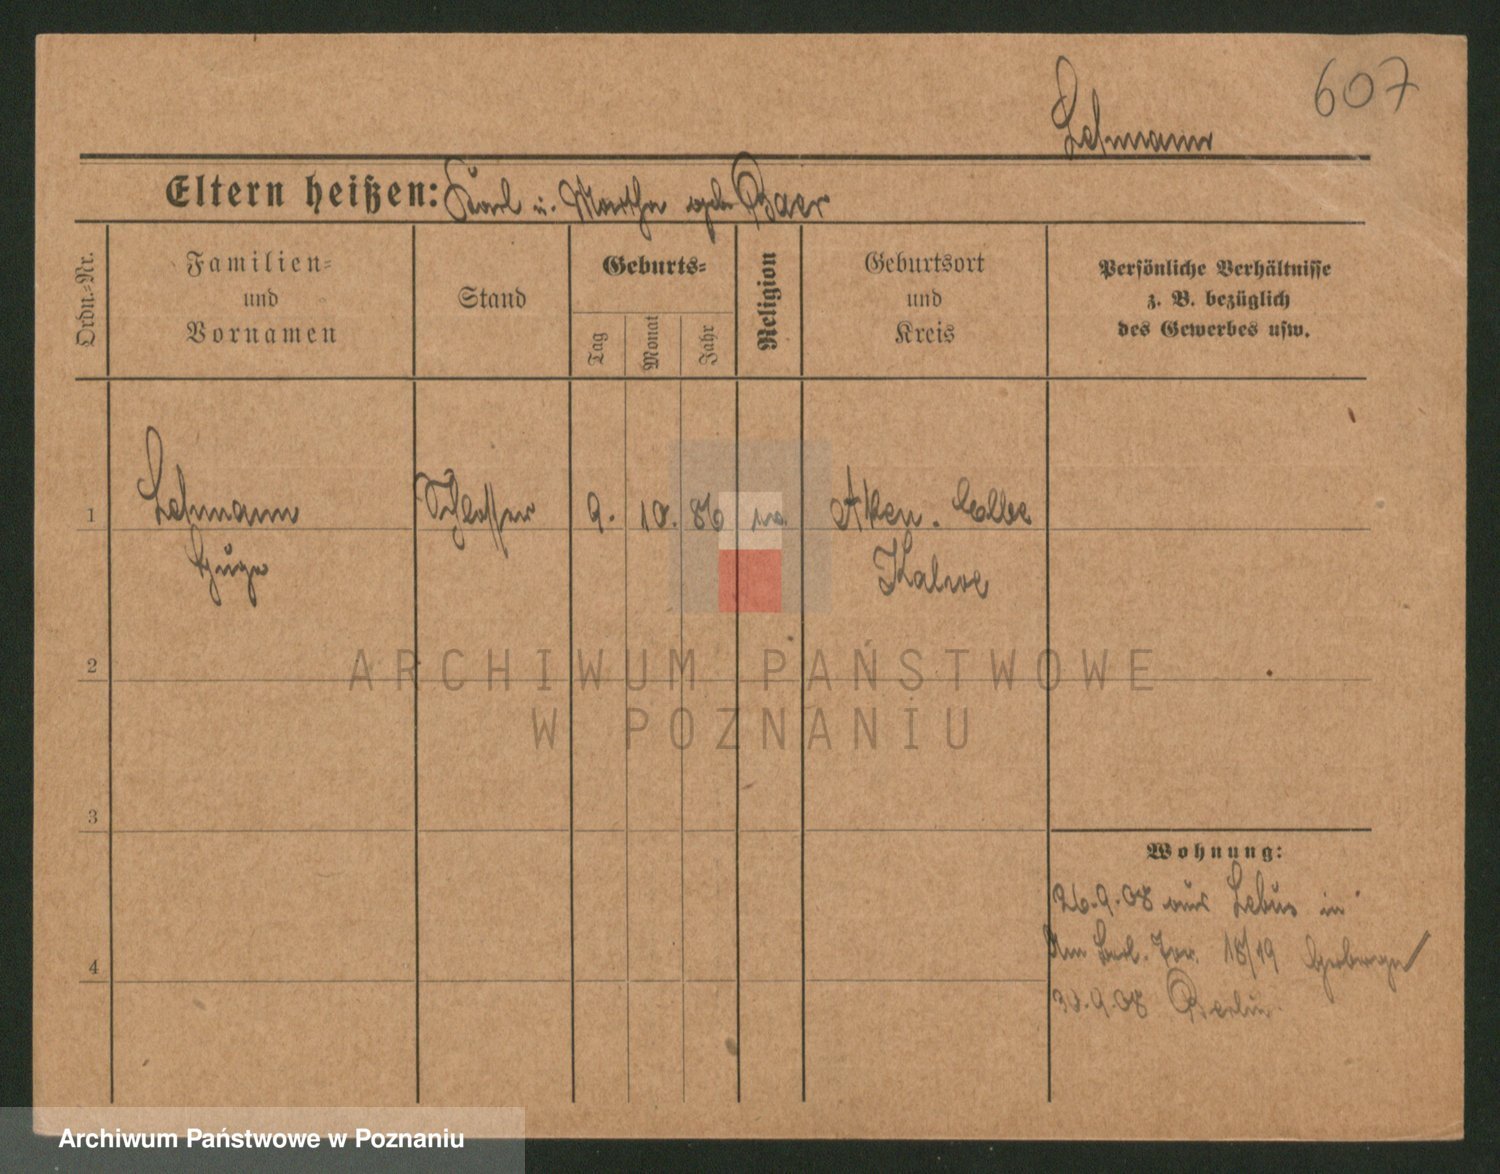 607
Lehmann
Eltern heißen: Karl u. Martha geb. Baer
Ordn.-Nr.
Familien-
und
Vornamen
Stand
Geburts-
Tag
Monat
Jahr
Religion
Geburtsort
und
Kreis
Persönliche Verhältnisse
z. B. bezüglich
des Gewerbes usw.
1 Lehmann Schlosser 9. 10. 86 Aken. Elbe
Hugo Kalwe
2
ARCHIWUM PAŃSTWOWE
W POZNANIU
3
Wohnung:
26.9.08 aus Lebus in
Am Berl. Tor. 18/19 Herberge
4
30.9.08 Berlin
Archiwum Państwowe w Poznaniu